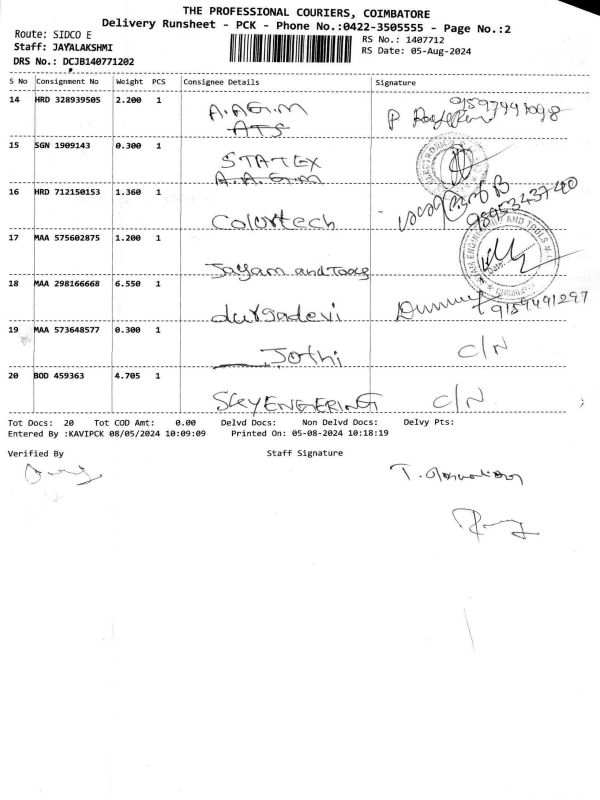 THE PROFESSIONAL COURIERS, COIMBATORE
Delivery Runsheet - PCK - Phone No.:0422-3505555 - Page No.:2
Route: SIDCO E
RS No.: 1407712
Staff: JAYALAKSHMI
RS Date: 05-Aug-2024
DRS No.: DCJB140771202
S No Consignment No Weight PCS Consignee Details Signature
14 HRD 328939505 2.200 1 A.AG.M
ATS
15 SGN 1909143 0.300 1 STATEX
A.A.G.M
16 HRD 712150153 1.360 1 Colortech
17 MAA 575602875 1.200 1 Jayam and Tools
18 MAA 298166668 6.550 1 durgadevi 9159491297
19 MAA 573648577 0.300 1 Jothi C/N
20 BOD 459363 4.705 1 SKYENGERING C/N
Tot Docs: 20 Tot COD Amt: 0.00 Delvd Docs: Non Delvd Docs: Delvy Pts:
Entered By :KAVIPCK 08/05/2024 10:09:09 Printed On: 05-08-2024 10:18:19
Verified By Staff Signature